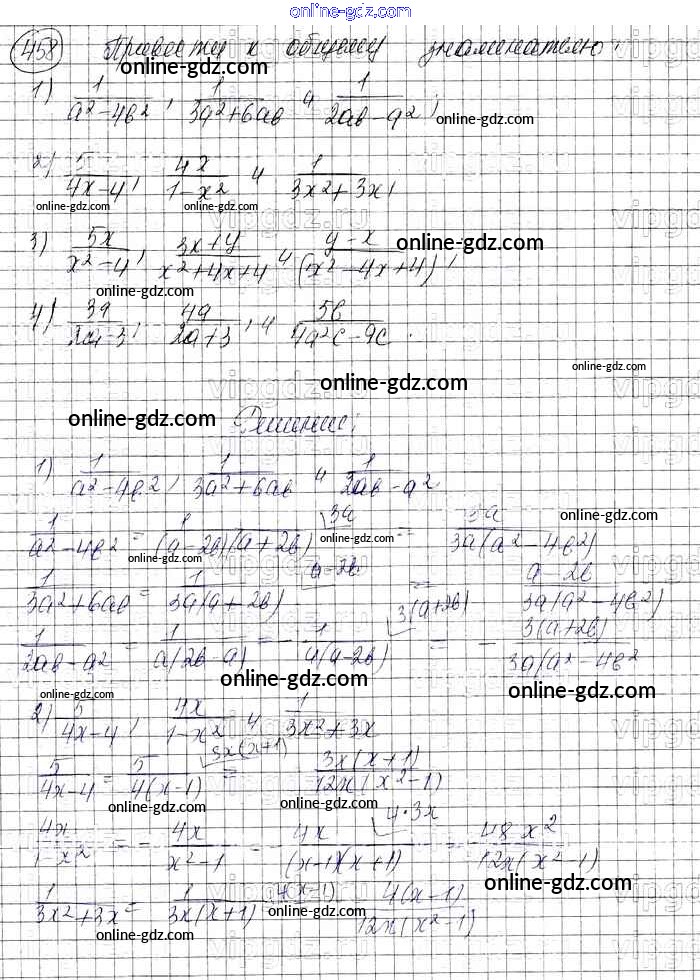 online-gdz.com
458 Привести к общему знаменателю:
online-gdz.com
1) 1/(a²-4b²), 1/(3a²+6ab) и 1/(2ab-a²);
online-gdz.com
2) 5/(4x-4), 4x/(1-x²) и 1/(3x²+3x);
online-gdz.com online-gdz.com
3) 5x/(x²-4), (3x+y)/(x²+4x+4) и (y-x)/(x²-4x+4);
online-gdz.com
online-gdz.com
4) 3a/(2a-3), 4a/(2a+3), и 5b/(4a²c-9c).
online-gdz.com
online-gdz.com
online-gdz.com
Решение:
1) 1/(a²-4b²), 1/(3a²+6ab) и 1/(2ab-a²)
online-gdz.com
1/(a²-4b²) = 1/((a-2b)(a+2b)) 3a = 3a/(3a(a²-4b²))
online-gdz.com online-gdz.com
1/(3a²+6ab) = 1/(3a(a+2b)) a-2b = (a-2b)/(3a(a²-4b²))
1/(2ab-a²) = 1/(a(2b-a)) = -1/(a(a-2b)) 3(a+2b) = -3(a+2b)/(3a(a²-4b²
online-gdz.com
online-gdz.com online-gdz.com
2) 5/(4x-4), 4x/(1-x²) и 1/(3x²+3x)
5/(4x-4) = 5/(4(x-1)) 3x(x+1) = 3x(x+1)/(12x(x²-1))
online-gdz.com online-gdz.com
4x/(1-x²) = -4x/(x²-1) = -4x/((x-1)(x+1)) 4·3x = -48x²/(12x(x²-1))
online-gdz.com
1/(3x²+3x) = 1/(3x(x+1)) 4(x-1) = 4(x-1)/(12x(x²-1))
online-gdz.com
online-gdz.com